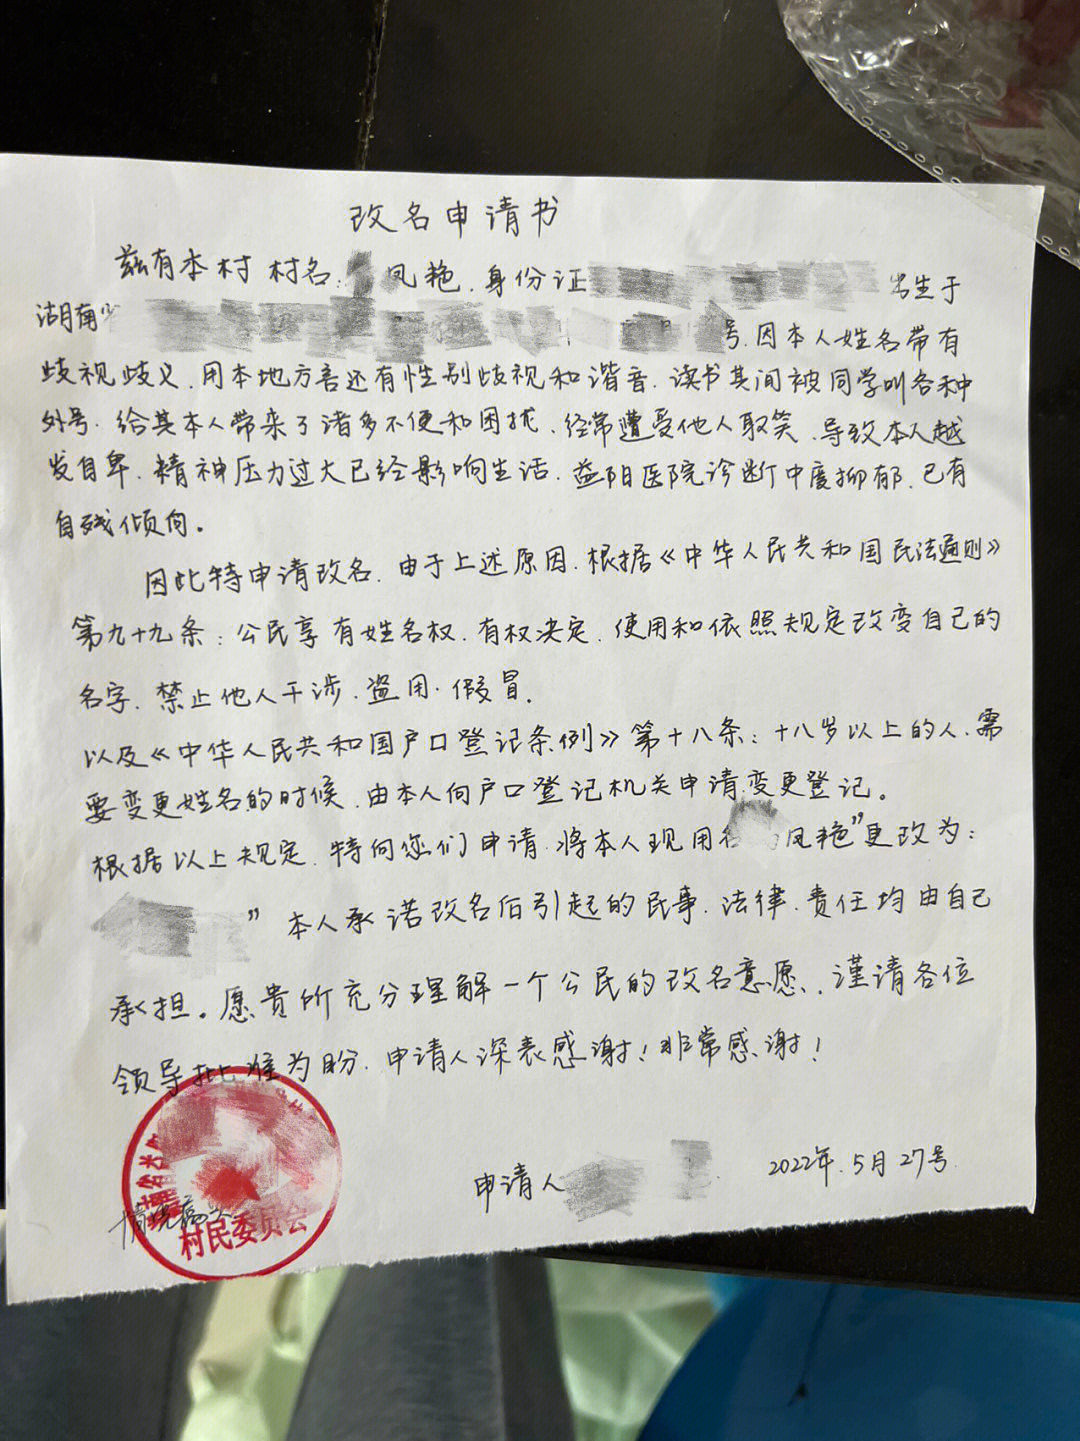 改名申请书
兹有本村 村名：凤艳，身份证 出生于
湖南省 号，因本人姓名带有
歧视歧义，用本地方言还有性别歧视和谐音，读书其间被同学叫各种
外号，给其本人带来了诸多不便和困扰，经常遭受他人取笑，导致本人越
发自卑，精神压力过大已经影响生活，益阳医院诊断中度抑郁，已有
自残倾向。
因此特申请改名，由于上述原因，根据《中华人民共和国民法通则》
第九十九条：公民享有姓名权，有权决定，使用和依照规定改变自己的
名字，禁止他人干涉，盗用，假冒，
以及《中华人民共和国户口登记条例》第十八条：十八岁以上的人，需
要变更姓名的时候，由本人向户口登记机关申请变更登记。
根据以上规定，特向您们申请，将本人现用名凤艳”更改为：
” 本人承诺改名后引起的民事，法律，责任均由自己
承担。愿贵所充分理解一个公民的改名意愿，谨请各位
领导批准为盼，申请人深表感谢！非常感谢！
申请人 2022年5月27号
情况属实
村民委员会